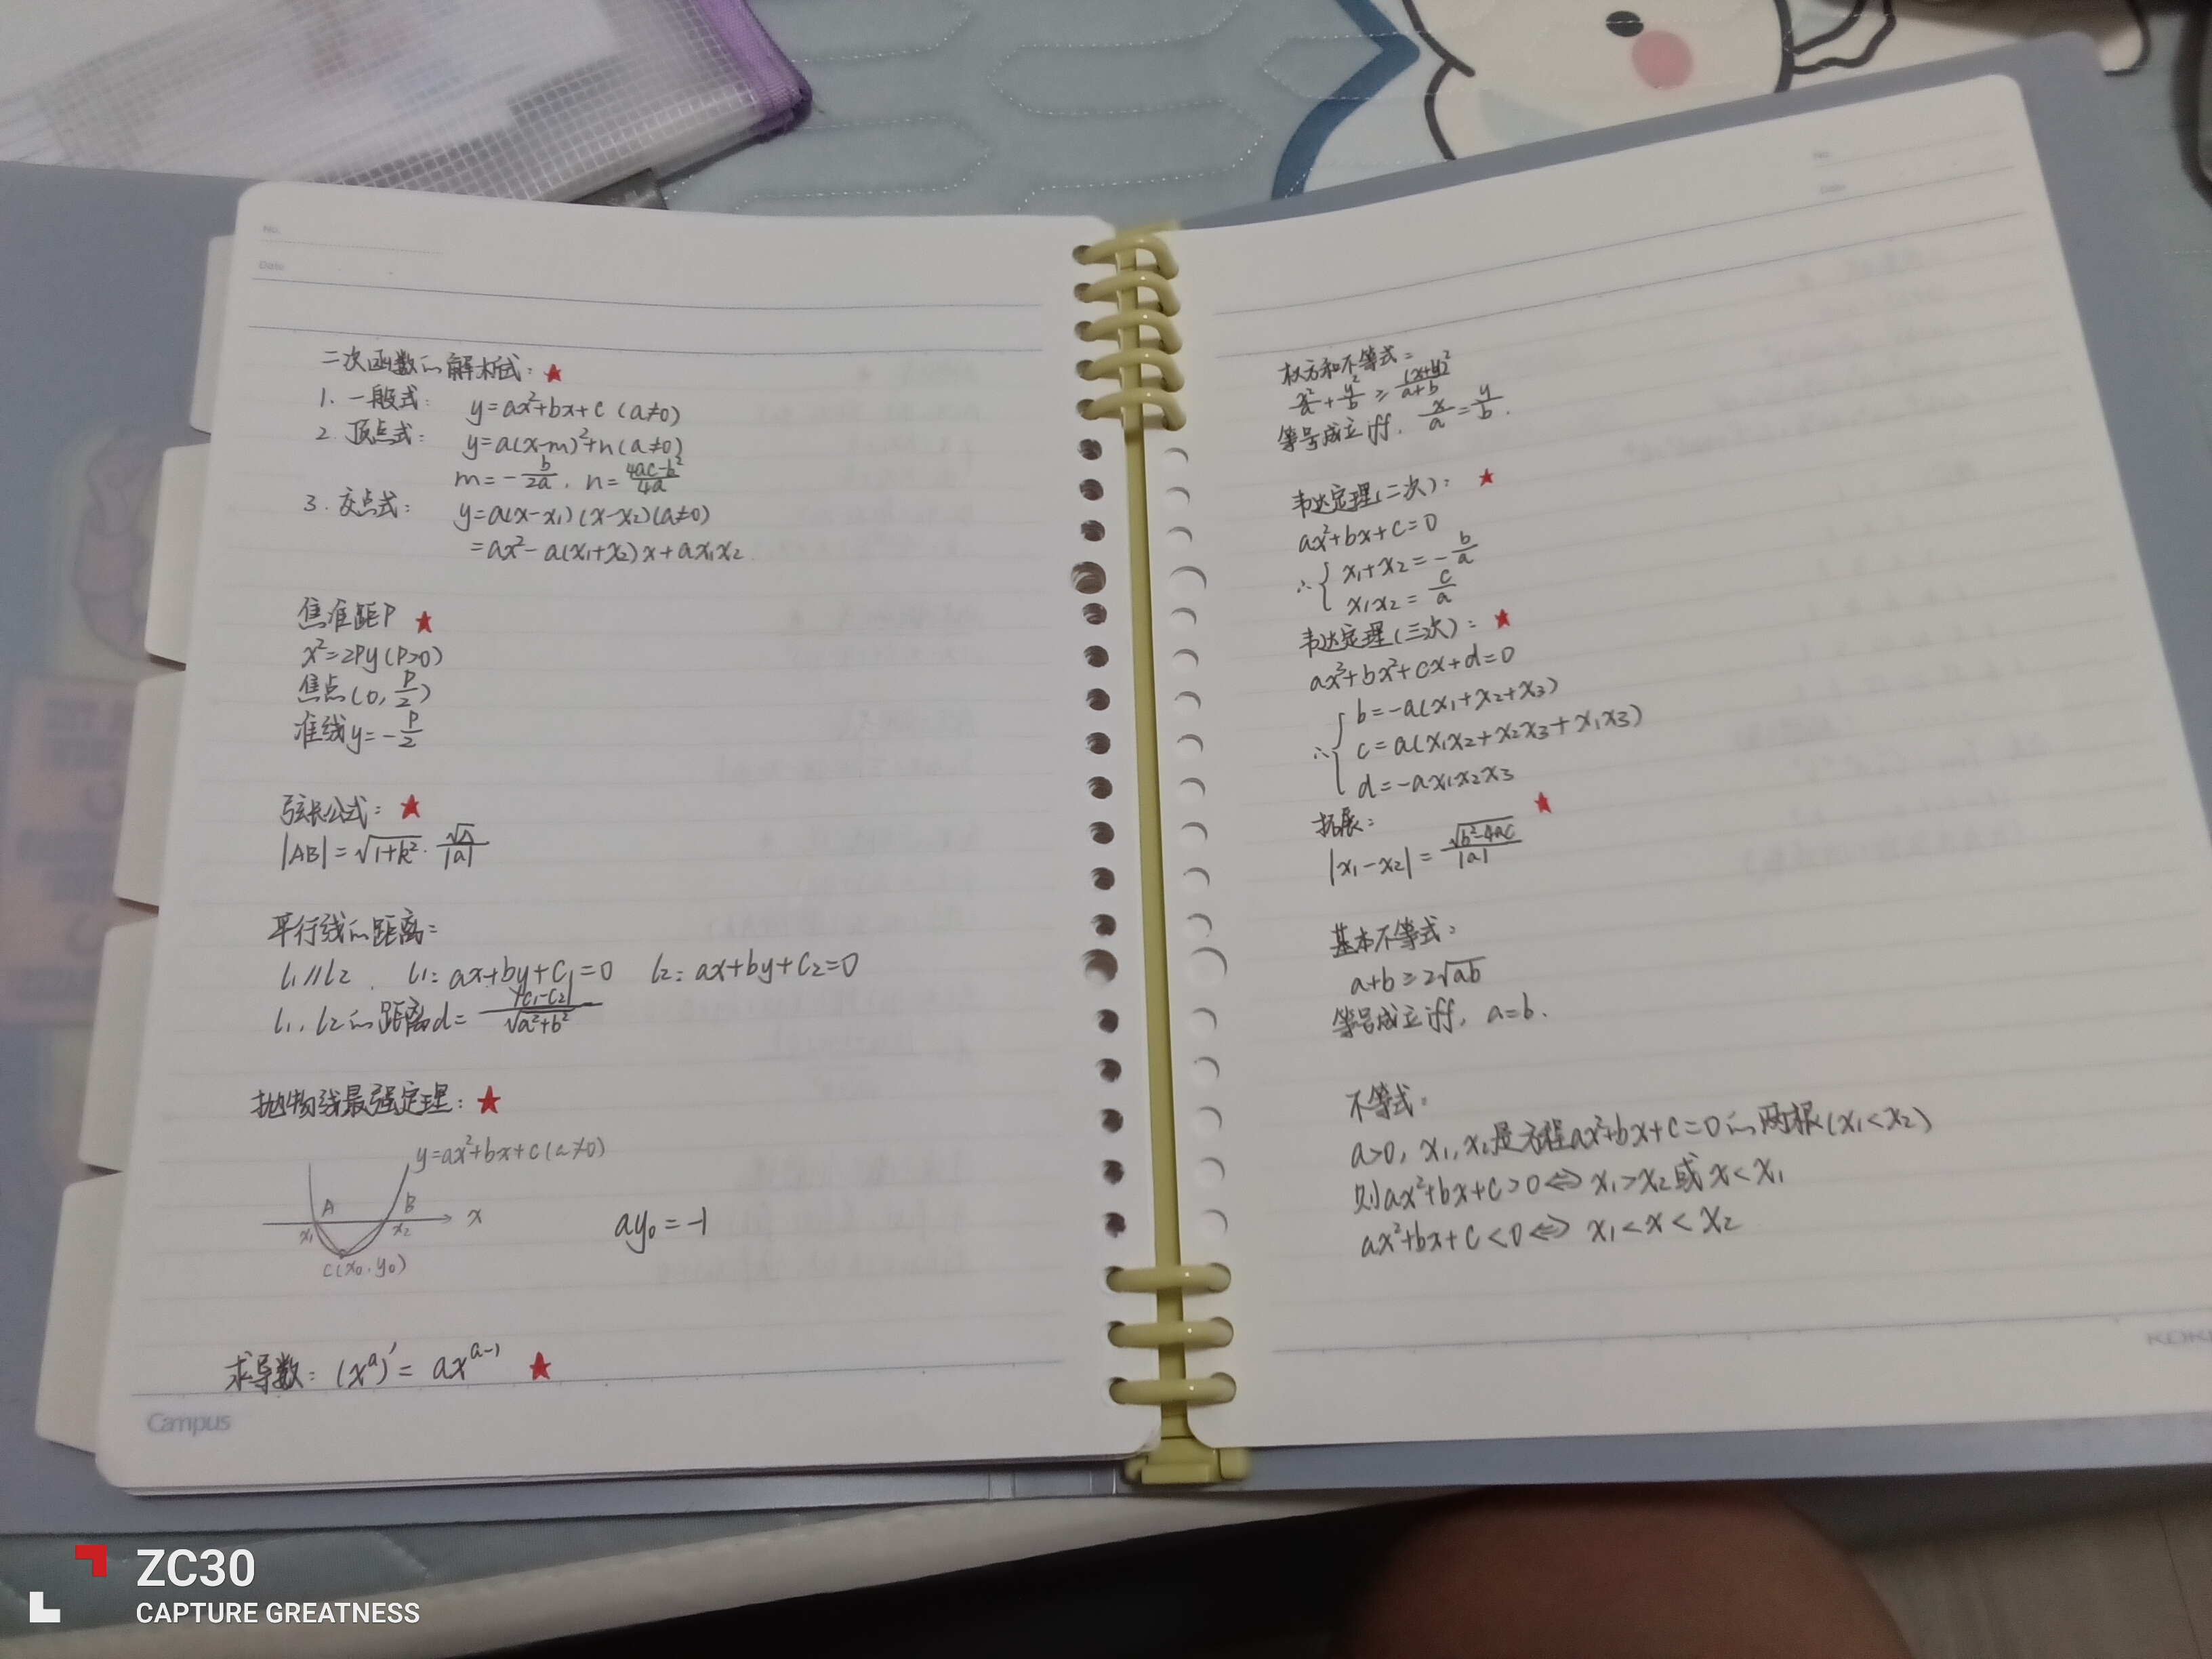 No.
Date
二次函数的解析式：★
1. 一般式： y=ax²+bx+c (a≠0)
2. 顶点式： y=a(x-m)²+n (a≠0)
m=-b/2a, n=(4ac-b²)/4a
3. 交点式： y=a(x-x₁)(x-x₂)(a≠0)
=ax²-a(x₁+x₂)x+ax₁x₂
焦准距P ★
x²=2Py(P>0)
焦点(0, P/2)
准线y=-P/2
弦长公式：★
|AB|=√(1+k²)·√Δ/|a|
平行线的距离：
l₁//l₂, l₁: ax+by+C₁=0 l₂: ax+by+C₂=0
l₁, l₂的距离d=|C₁-C₂|/√(a²+b²)
抛物线最强定理：★
y=ax²+bx+c(a≠0)
A B
x₁ x₂ x
C(x₀, y₀)
ay₀=-1
求导数：(xᵃ)′= axᵃ⁻¹ ★
Campus
No.
Date
权方和不等式：
x²/a+y²/b≥(x+y)²/(a+b)
等号成立iff, x/a=y/b.
韦达定理(二次)：★
ax²+bx+c=0
∴{x₁+x₂=-b/a
x₁x₂=c/a
韦达定理(三次)：★
ax³+bx²+cx+d=0
∴{b=-a(x₁+x₂+x₃)
c=a(x₁x₂+x₂x₃+x₁x₃)
d=-ax₁x₂x₃
拓展：★
|x₁-x₂|=√(b²-4ac)/|a|
基本不等式：
a+b≥2√ab
等号成立iff, a=b.
不等式：
a>0, x₁, x₂是方程ax²+bx+c=0的两根(x₁<x₂)
则ax²+bx+c>0⇔x₁>x₂或x<x₁
ax²+bx+c<0⇔x₁<x<x₂
ZC30
CAPTURE GREATNESS